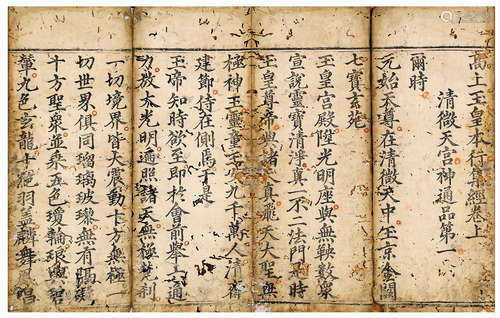 高上玉皇本行集經卷上
清微天宮神通品第一
爾時
元始天尊在清微天中玉京金闕
七寶玄苑
玉皇宮殿陞光明座與無鞅數衆
宣說靈寶清淨真一不二法門是時
玉皇尊帝與諸 真飛天大聖與
極神王靈童玉女九千萬人清齋
建節侍在側焉于是
玉帝知時欲至即於會前舉 通
力放大光明遍照諸天無極世 刹
一切境界皆大震動十方無極一
切世界俱同瑠璃玻瓈無有隔礙
十方聖衆並乘五色瓊輪琅輿碧
輦九色玄龍十絶羽蓋麟舞鳳唱